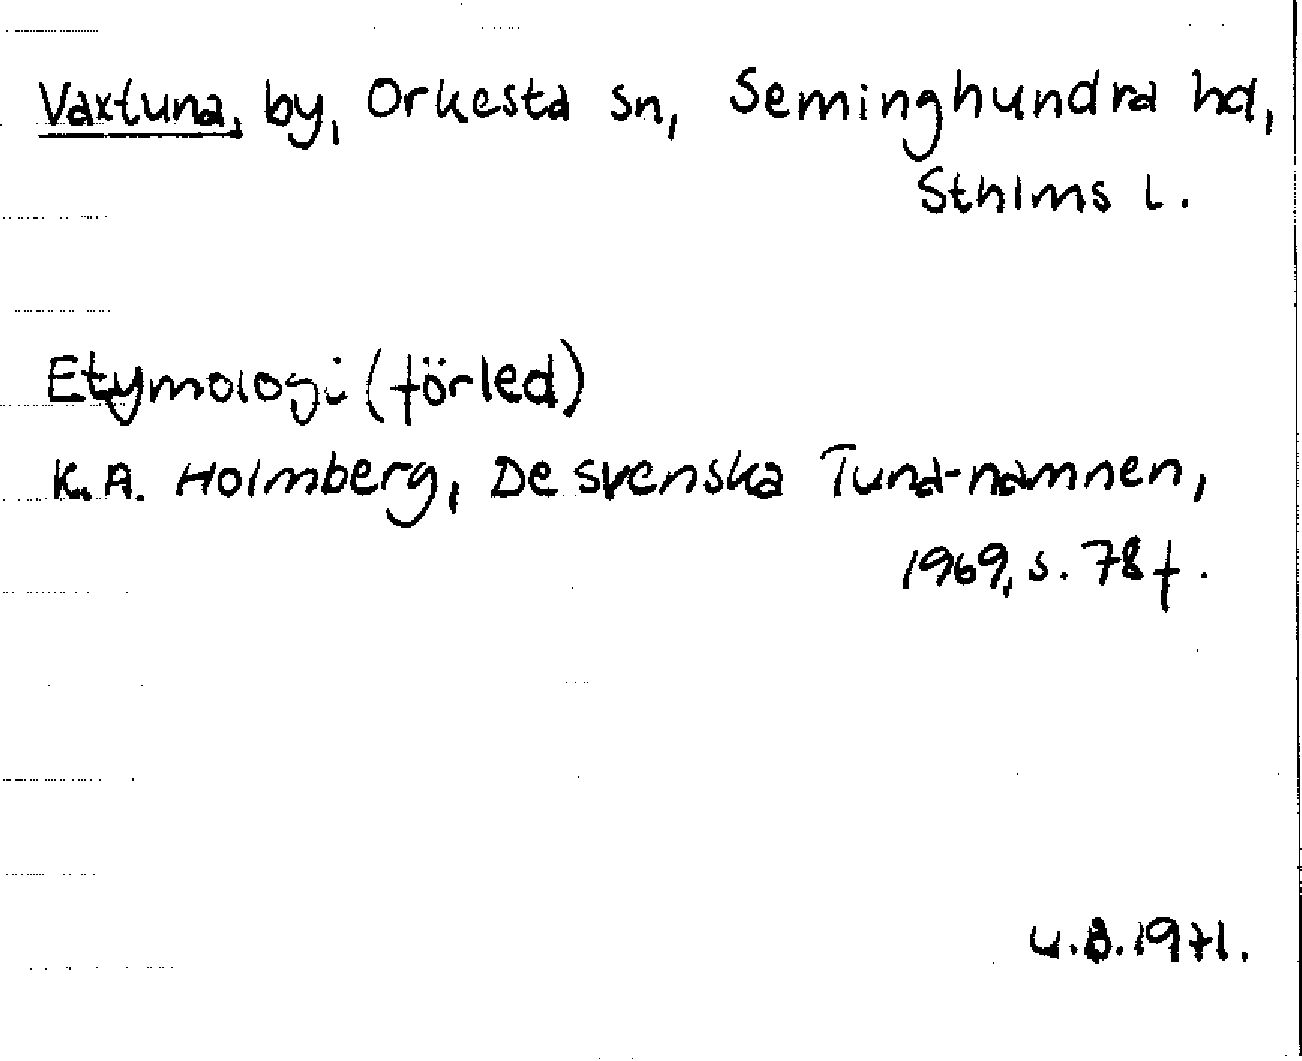 Vaxtuna, by, Orkesta sn, Seminghundra hd,
Sthlms l.
Etymologi (förled)
K.A. Holmberg, De svenska Tuna-namnen,
1969, s. 78 f.
U.B. 1971.